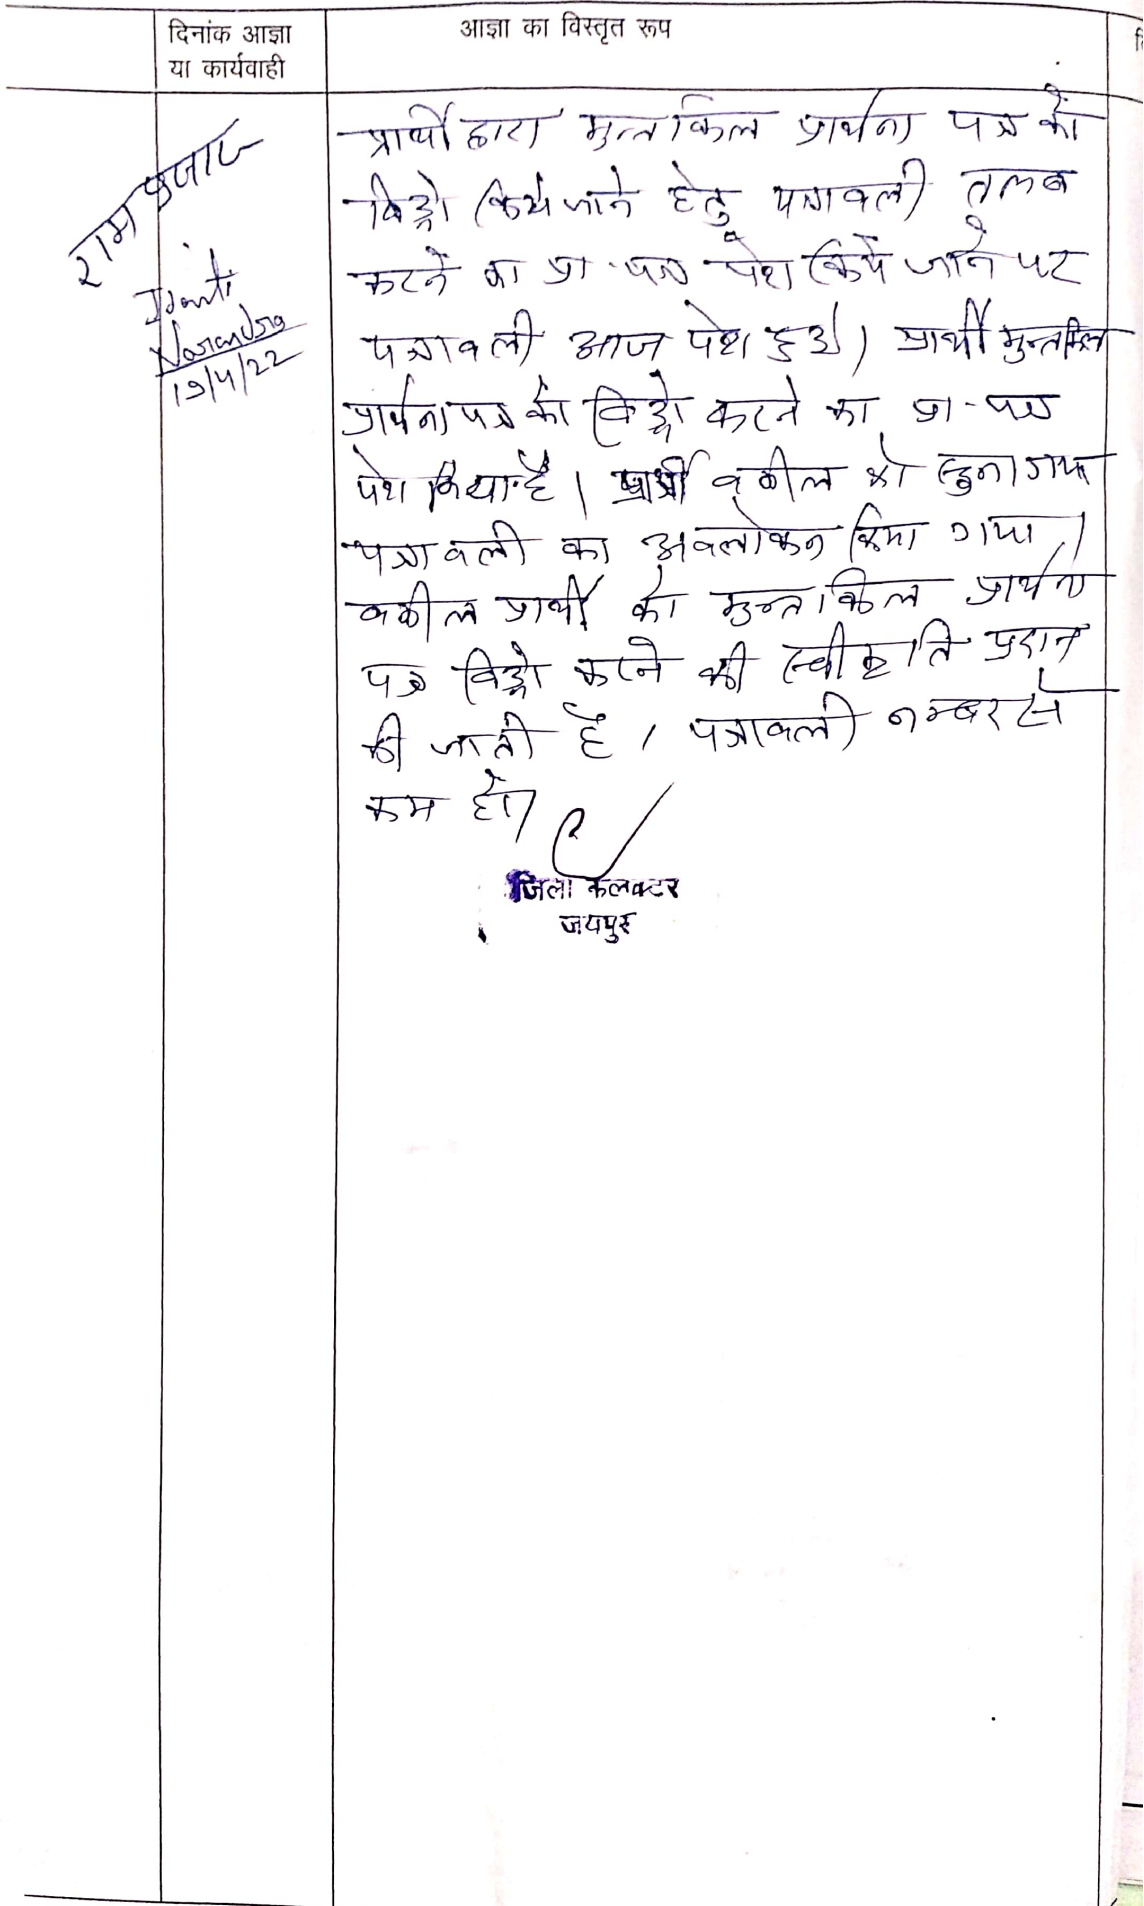 दिनांक आज्ञा
या कार्यवाही
आज्ञा का विस्तृत रूप
प्रार्थी द्वारा मुन्तकिल प्रार्थना पत्र को
विड्रो किये जाने हेतु पत्रावली तलब
करने का प्रा-पत्र पेश किये जाने पर
पत्रावली आज पेश हुई। प्रार्थी मुन्तकिल
प्रार्थना पत्र को विड्रो करने का प्रा-पत्र
पेश किया है। प्रार्थी वकील को सुना गया
पत्रावली का अवलोकन किया गया।
वकील प्रार्थी को मुन्तकिल प्रार्थना
पत्र विड्रो करने की स्वीकृति प्रदान
की जाती है। पत्रावली नम्बर से
कम हो।
जिला कलक्टर
जयपुर
राम
Narendra
19/4/22